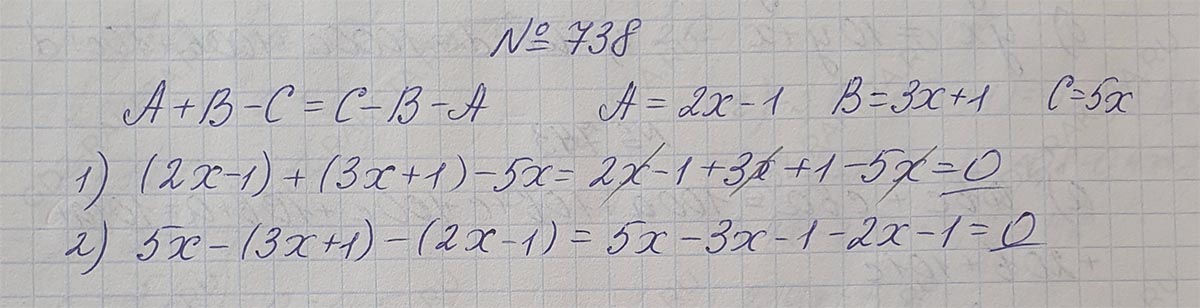 № 738
A + B - C = C - B - A A = 2x - 1 B = 3x + 1 C = 5x
1) (2x - 1) + (3x + 1) - 5x = 2x - 1 + 3x + 1 - 5x = 0
2) 5x - (3x + 1) - (2x - 1) = 5x - 3x - 1 - 2x - 1 = 0